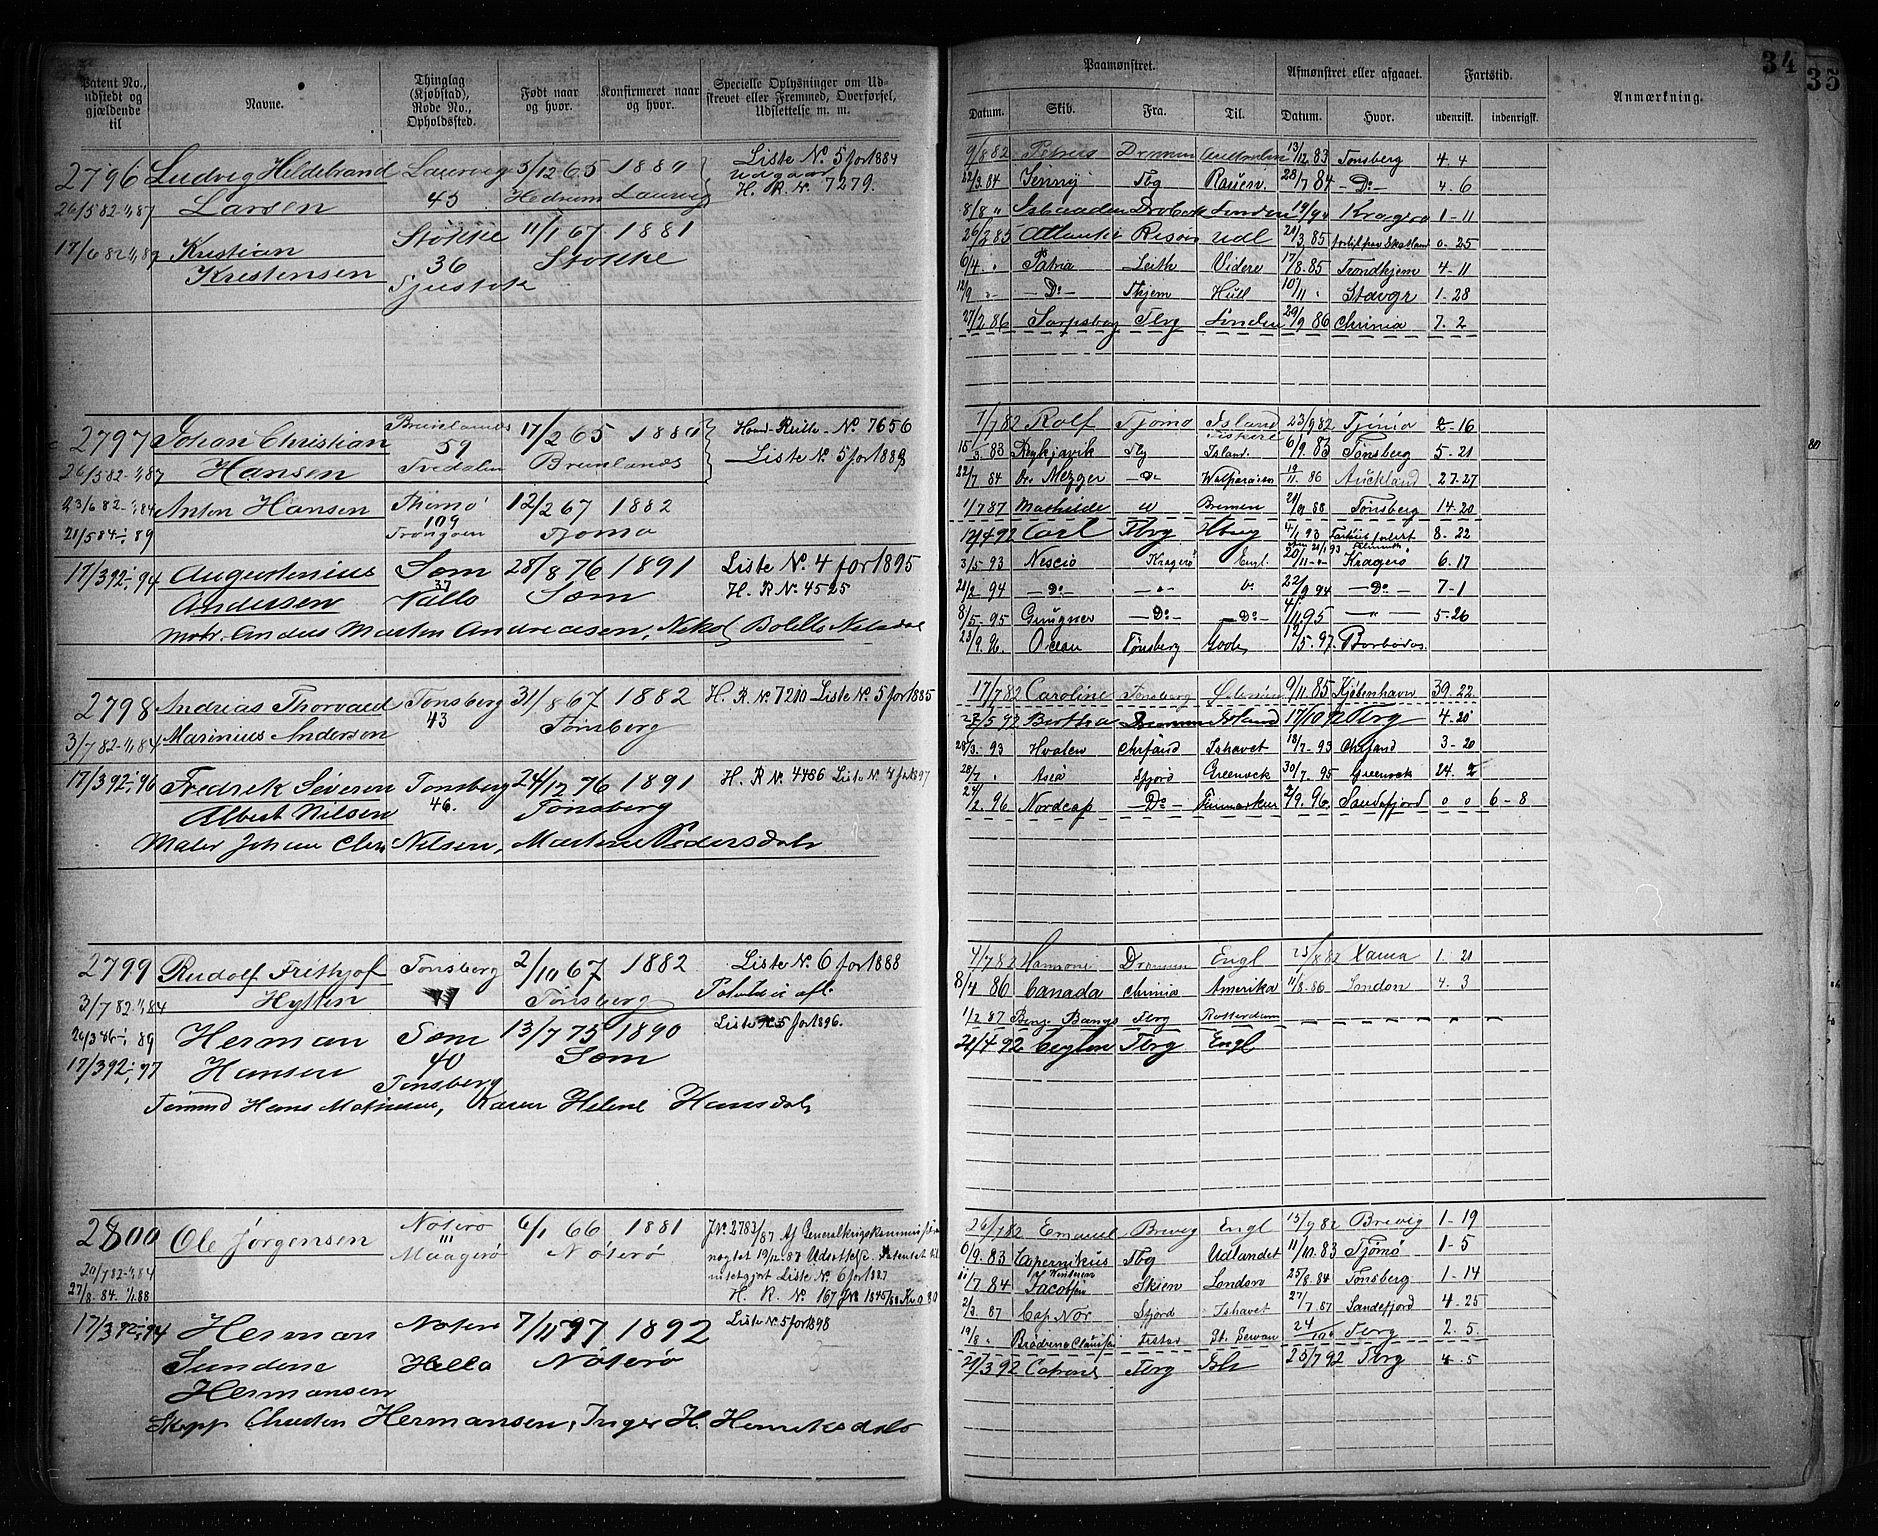 34
35
Patent No., udstedt og gjældende til
Navne.
Thinglag (Kjøbstad), Rode No., Opholdssted.
Født naar og hvor.
Konfirmeret naar og hvor.
Specielle Oplysninger om Udstrevet eller Fremmed, Overførsel, Udslettelse m. m.
Paamønstret.
Afmønstret eller afgaaet.
Fartstid.
Anmærkning.
Datum. Skib. Fra. Til. Datum. Hvor. udenrisk. indenrigsk.
2796 Ludvig Hildebrand Laurvig 5/12 65 1880 Liste No. 5 for 1884
udgaar
26/5 82 - 1/1 87 Larsen 45 Hedrum Laurvig H. R. No. 7279.
17/6 82 1/1 87 Kristian Stokke 11/1 67 1881
Kristensen 36 Stokke
9/8 82 Petrus Drammen 13/12 83 Tønsberg 4. 4
22/3 84 Jenny Tbg Rouen 28/7 84 - Do - 4. 6
8/8 " Drøbak London Kragerø 1-11
26/2 85 Atlantic Risør Udl 21/3 85 0. 25
6/4 " Patria Leith Videre 17/8 85 Trondhjem 4-11
12/9 " - Do - Thjem Hull 10/11 " Stavgr 1-28
27/2 86 Sarpsborg Tbrg London 29/9 86 Chrinia 7. 2
2797 Johan Christian Brunlands 17/2 65 1880 Hoved-Rulle No. 7656
59
26/5 82 - 1/1 87 Hansen Tredalen Brunlands Liste No. 5 for 1889
23/6 82 - 1/1 84 Anton Hansen Thømø 12/2 67 1882
109
21/5 84 - 1/1 89 Tjømø
17/3 92 - 1/1 94 Augustinius Sem 28/8 76 1891 Liste No. 4 for 1895
37
Andersen Vallo Sem H. R No. 4525
Motr. Anders Martin Andreasen,
1/7 82 Rolf Tjømø Island 23/9 82 Tjømø 2-16
Fiskeri
15/3 83 Reykjavik Tbg Island. 6/9 83 Tønsberg 5-21
22/7 84 Dr. Mezger - Do - Valparaiso 19/11 86 Auckland 27-27
1/7 87 Mathilde Bremen 21/9 88 Tønsberg 14-20
Carl Tbrg Hbrg 4/1 93 8-22
3/5 93 Nescio Kragerø Engl. 20/11 Kragerø 6. 17
21/2 94 - Do - - " - Do 22/9 94 - Do - 7-1
8/5 - 95 Gungner - Do - - Do - 4/11 95 - " - 5-26
23/9. 96 Ocean Tønsberg 12/5 - 97. Barbados.
2798 Andrias Thorvald Tønsberg 31/8 67 1882 H. R No 7210 Liste No. 5 for 1885
3/7 82 - 1/1 84 Marinius Anderson 43 Tønsberg
17/3 92 - 1/1 96 Fredrik Severin Tønsberg 24/12 76 1891 H. R No 4486 Liste No. 4 for 1897
Albert Nilsen 46. Tønsberg
Maler Johan Chr. Nilsen, Martine Pedersdatr
17/7 82 Caroline Tønsberg 9/11 85 Kjøbenhavn 39. 22
27/5 92 Bertha Drammen 17/10 92 Tbrg 4. 20
28/3 - 93 Hvalen Chrfand Ishavet 18/7 - 93 Chrfand 3-20
28/7 " Asia Sfjord Greenock 30/7. 95 Greenock 24. 2
24/2. 96 Nordcap - Do - Finmarken 2/9. 96. Sandefjord 0 0 6-8
2799 Rudolf Frithjof Tønsberg 2/10 67 1882 Liste No. 6 for 1888
3/7 82 - 1/1 84 Hytten Tønsberg
89 Herman Sem 13/7 75 1890 Liste No 5 for 1896.
17/3 92 - 1/1 97 Hansen 40 Sem
Tønsberg
Tømmd Hans Mathisen, Karen Helene Hansdatr
4/7 82 Harmoni Drammen Engl 25/8 82 Xania 1-21
8/4 86 Canada Chrinia Amerika 11/8-86 London 4. 3
1/2 87 Benj. Bangs Tbrg Rotterdam
21/4 92 Ceylon Tbrg Engl
2800 Ole Jørgensen Nøterø 6/1 66 1881 J No. 2783/87 Af Generalkrigskommissæren
111
Maagerø Nøterø nægtet 19/12 87 Udsættelse. Patentet til
20/7 82 - 1/1 84 Liste No. 6 for 1887
27/8. 84. 1/1. 88 H. R. No 167 J No 1845/88
17/3 92 - 1/1 94 Herman Nøterø 7/11 1892 Liste No. 5 for 1898
Sundene Hella Nøterø
Hermansen
Skipp Christen Hermansen, Inger H. Henriksdatr
26/7 82 Emanuel Brevig Engl 15/9 82 Brevig 1-19
6/9. 83 Copernikus Tbg Udlandet 11/10. 83 Tjømø 1-5
11/7 84 Jacobsen Skien London 25/8. 84 Tønsberg 1-14
2/3. 87 Cap Nor Sfjord Ishavet 27/7. 87 Sandefjord 4-25
19/8 " Brødrene St. Servan 24/10 " Tbrg 2. 5.
21/3 92 Tbrg Ish 25/7 92 Tbrg 4-5